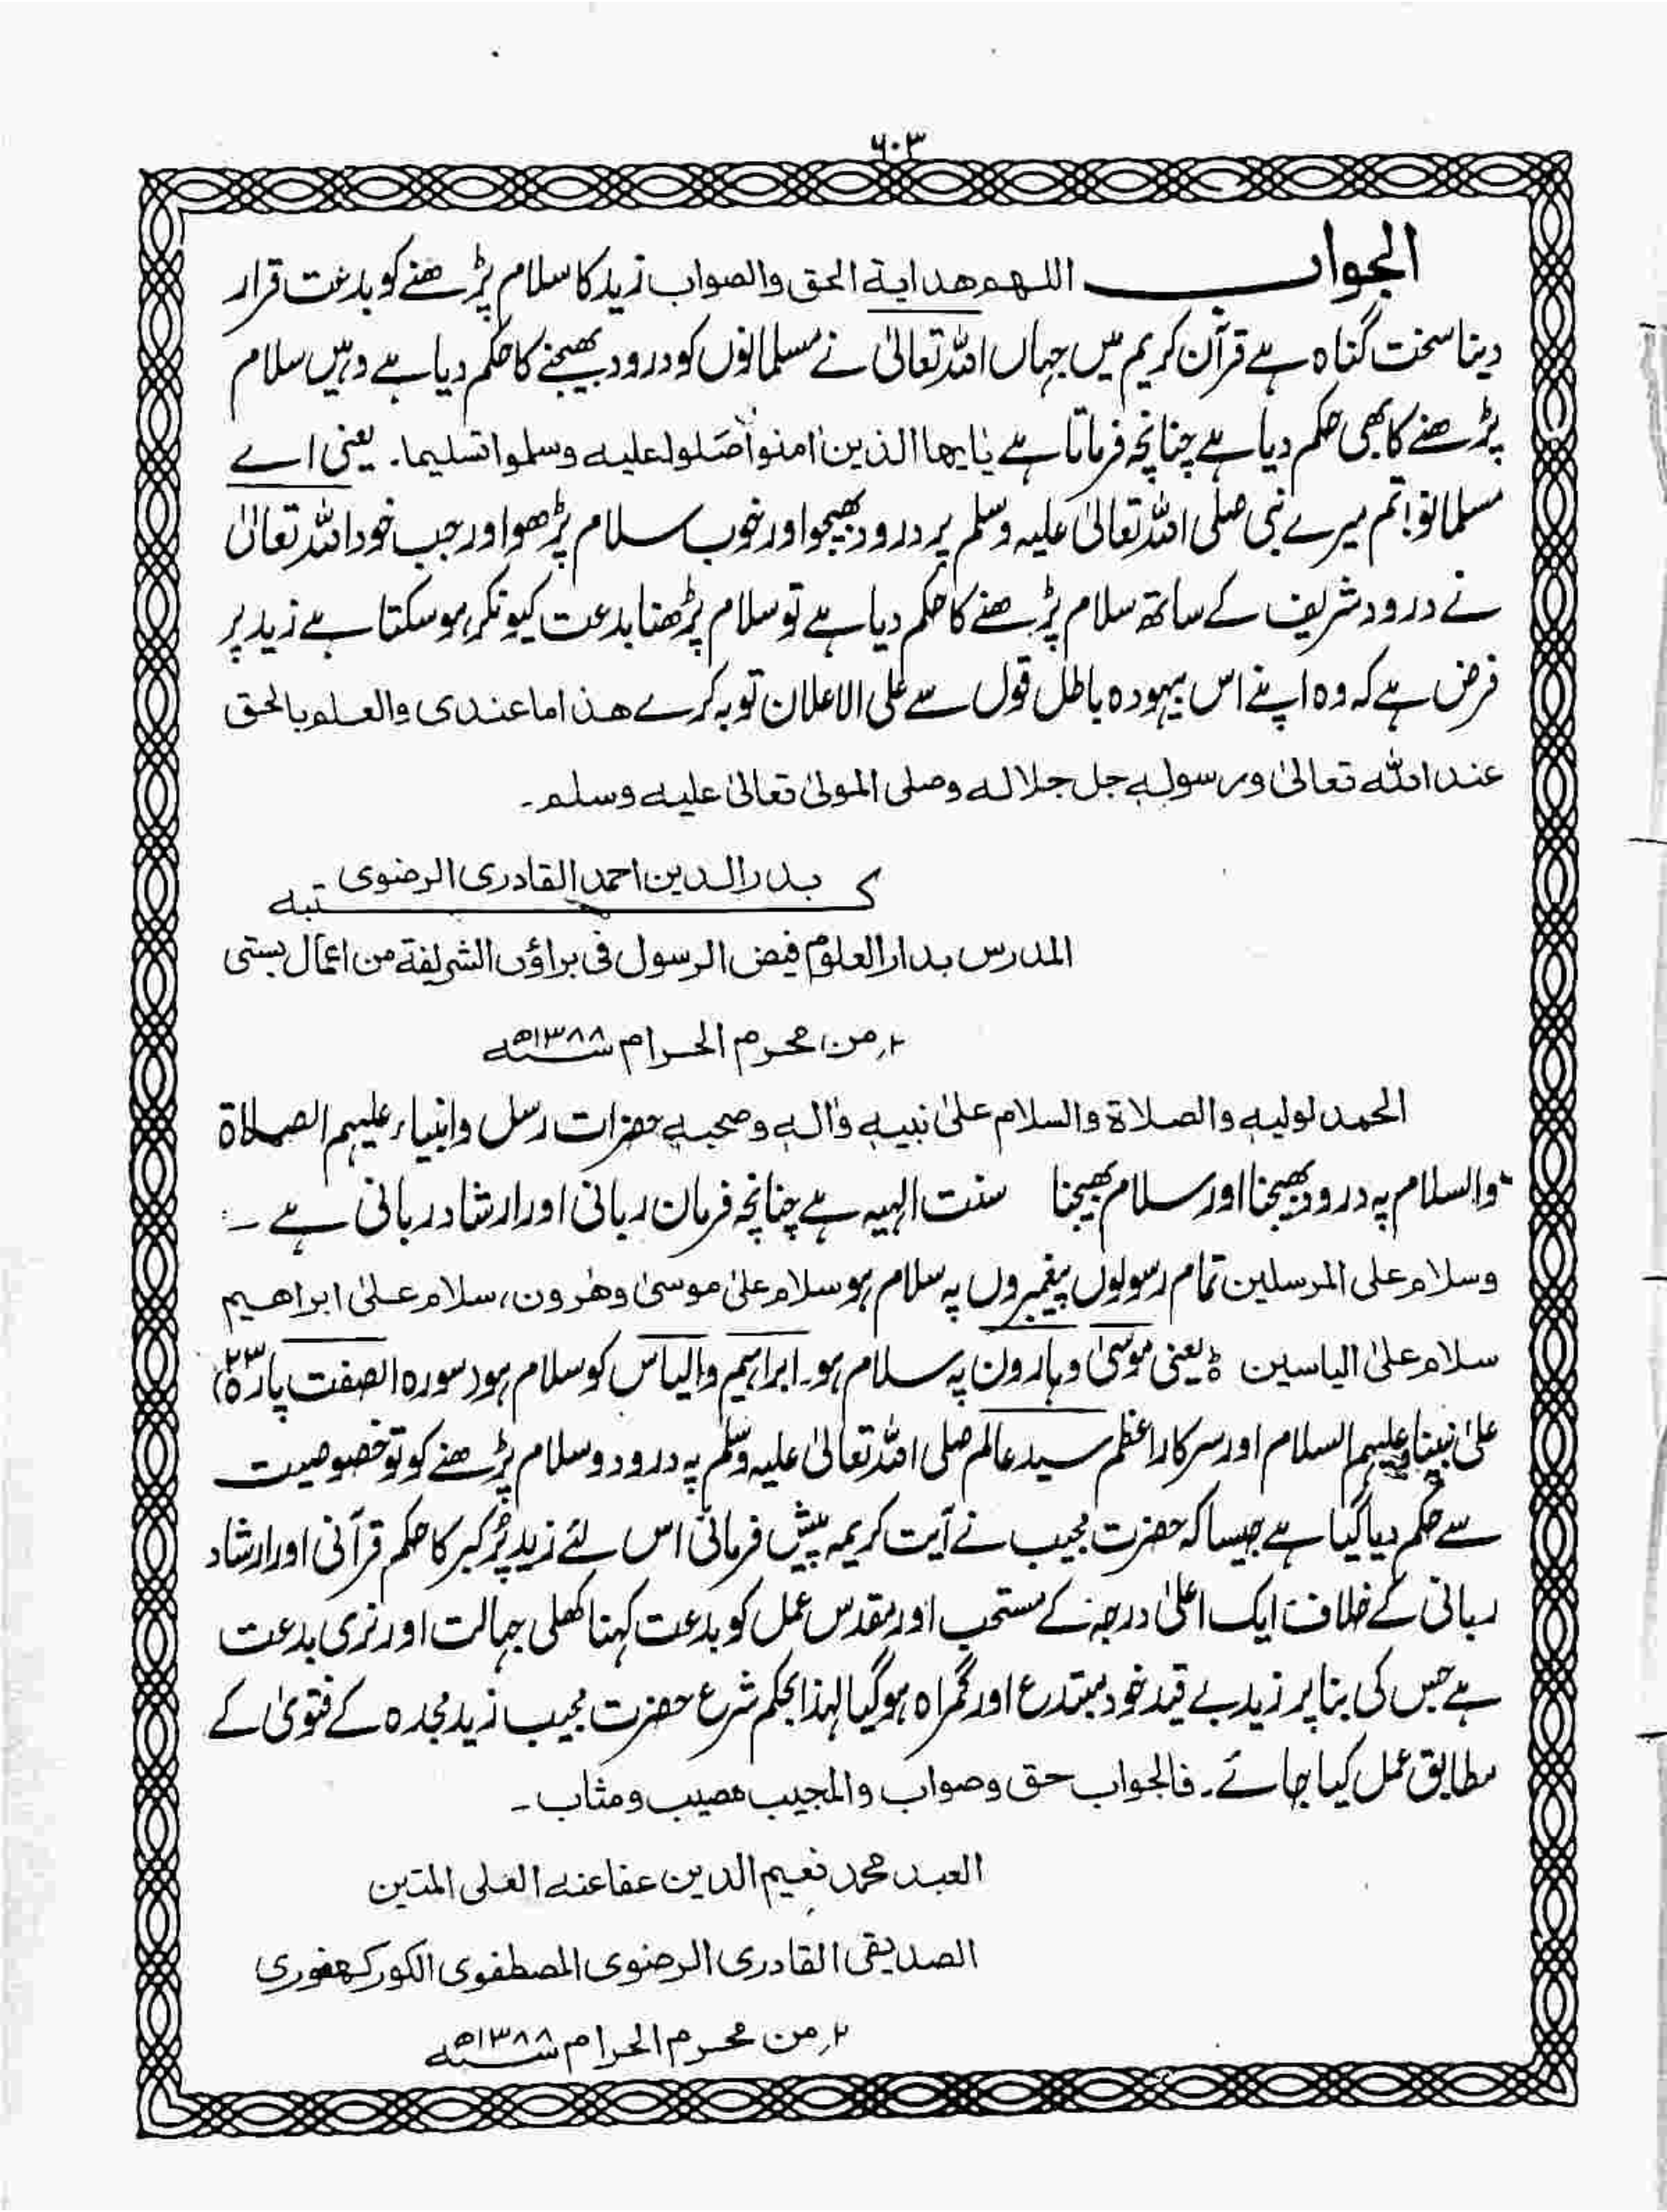 ۶۰۳
الجواب اللهم هداية الحق والصواب زید کا سلام پڑھنے کو بدعت قرار
دینا سخت گناہ ہے قرآن کریم میں جہاں اللہ تعالیٰ نے مسلمانوں کو درود بھیجنے کا حکم دیا ہے وہیں سلام
پڑھنے کا بھی حکم دیا ہے چنانچہ فرماتا ہے یٰایها الذین اٰمنوا صَلوا علیه وسلموا تسلیما۔ یعنی اے
مسلمانو! تم میرے نبی صلی اللہ تعالیٰ علیہ وسلم پر درود بھیجو اور خوب سلام پڑھو اور جب خود اللہ تعالیٰ
نے درود شریف کے ساتھ سلام پڑھنے کا حکم دیا ہے تو سلام پڑھنا بدعت کیونکر ہو سکتا ہے زید پر
فرض ہے کہ وہ اپنے اس بیہودہ باطل قول سے علی الاعلان توبہ کرے هذا ما عندی والعلم بالحق
عند اللہ تعالیٰ ورسوله جل جلاله وصلی المولیٰ تعالیٰ علیه وسلم۔
کتبه بدر الدین احمد القادری الرضوی
المدرس بدار العلوم فیض الرسول فی براؤں الشریفة من اعمال بستی
۲؍ من محرم الحرام سنه ۱۳۸۸ھ
الحمد لولیه والصلاة والسلام علیٰ نبیه واٰله وصحبه حضرات رسل وانبیاء علیہم الصلاة
والسلام پہ درود بھیجنا اور سلام بھیجنا سنت الٰہیہ ہے چنانچہ فرمان ربانی اور ارشاد ربانی ہے ۔
وسلام علی المرسلین تمام رسولوں پیغمبروں پہ سلام ہو سلام علیٰ موسیٰ وهٰرون، سلام علیٰ ابراهیم
سلام علیٰ الیاسین ہ یعنی موسیٰ و ہارون پہ سلام ہو۔ ابراہیم و الیاس کو سلام ہو (سورہ الصفت پارہ ۲۳)
علیٰ نبینا وعلیہم السلام اور سرکار اعظم سید عالم صلی اللہ تعالیٰ علیہ وسلم پہ درود و سلام پڑھنے کو تو خصوصیت
سے حکم دیا گیا ہے جیسا کہ حضرت مجیب نے آیت کریمہ پیش فرمائی اس لئے زید پُر کبر کا حکم قرآنی اور ارشاد
ربانی کے خلاف ایک اعلیٰ درجہ کے مستحب اور مقدس عمل کو بدعت کہنا کھلی جہالت اور نری بدعت
ہے جس کی بنا پر زید بے قید خود مبتدع اور گمراہ ہو گیا لہٰذا بحکم شرع حضرت مجیب زید مجدہ کے فتویٰ کے
مطابق عمل کیا جائے۔ فالجواب حق وصواب والمجیب مصیب ومثاب۔
العبد محمد نعیم الدین عفا عنه العلی المتین
الصدیقی القادری الرضوی المصطفوی الکورکهفوری
۲؍ من محرم الحرام سنه ۱۳۸۸ھ